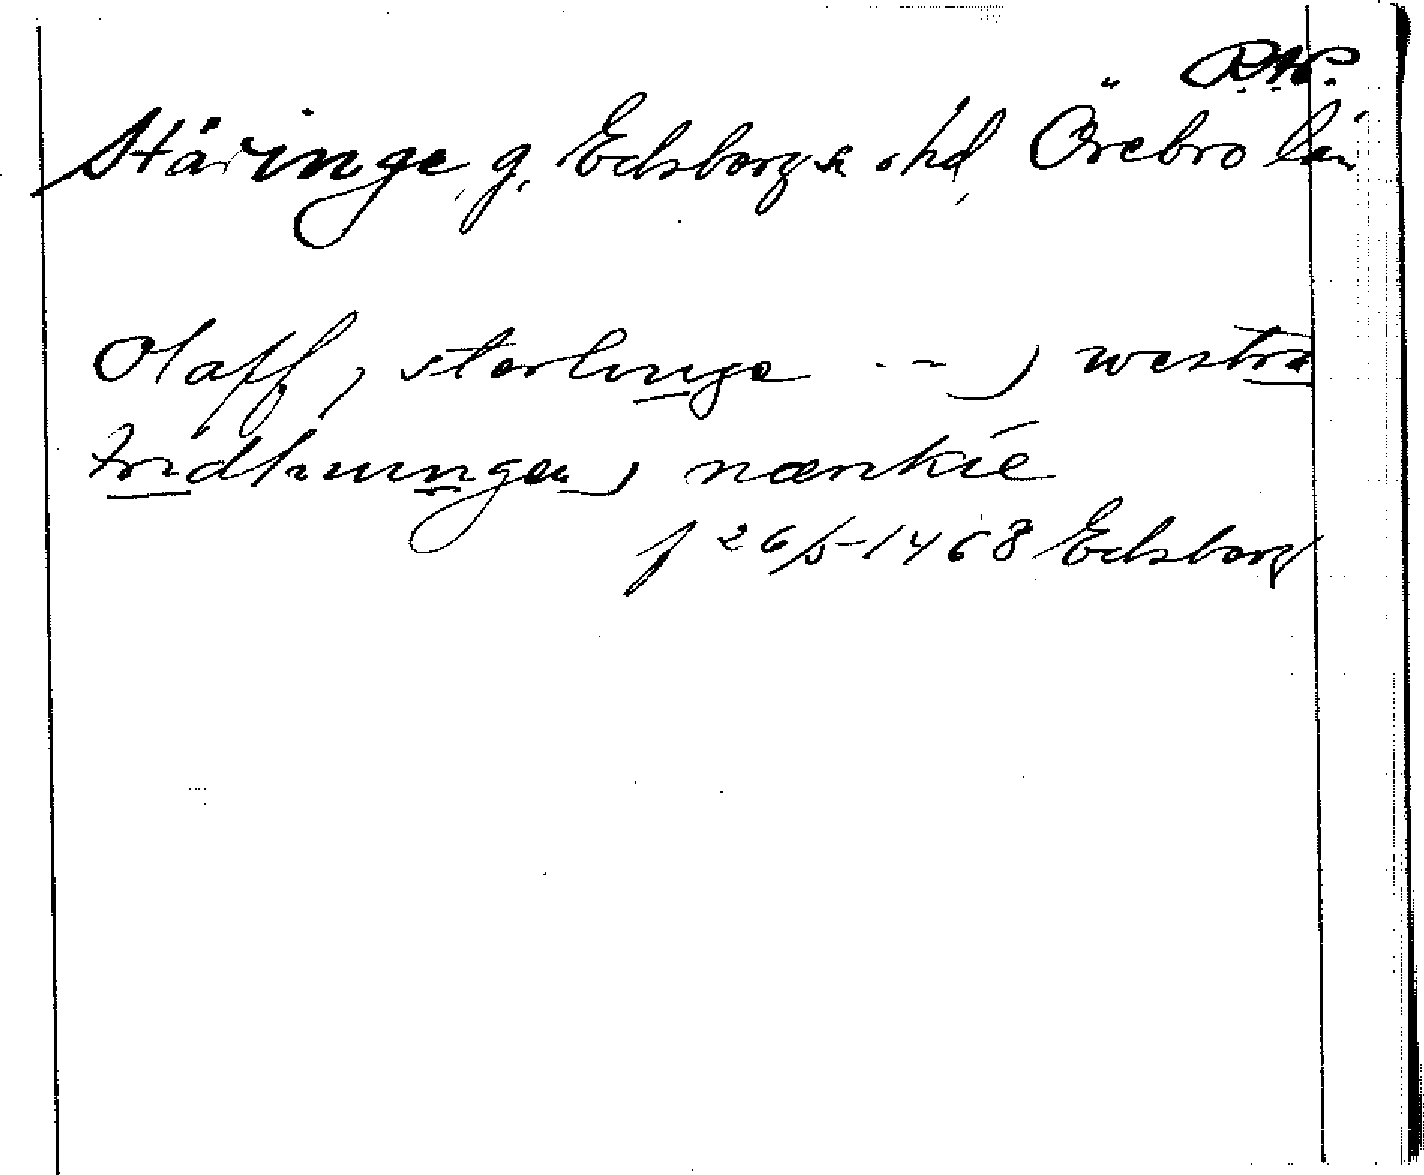 R.A.P.
Stäringe, g. Edsbergs sn o hd, Örebro län
Olaff, i sterlunge - - - i westra
tridhiungen, i nærikie
f 26/5-1468 Edsberg